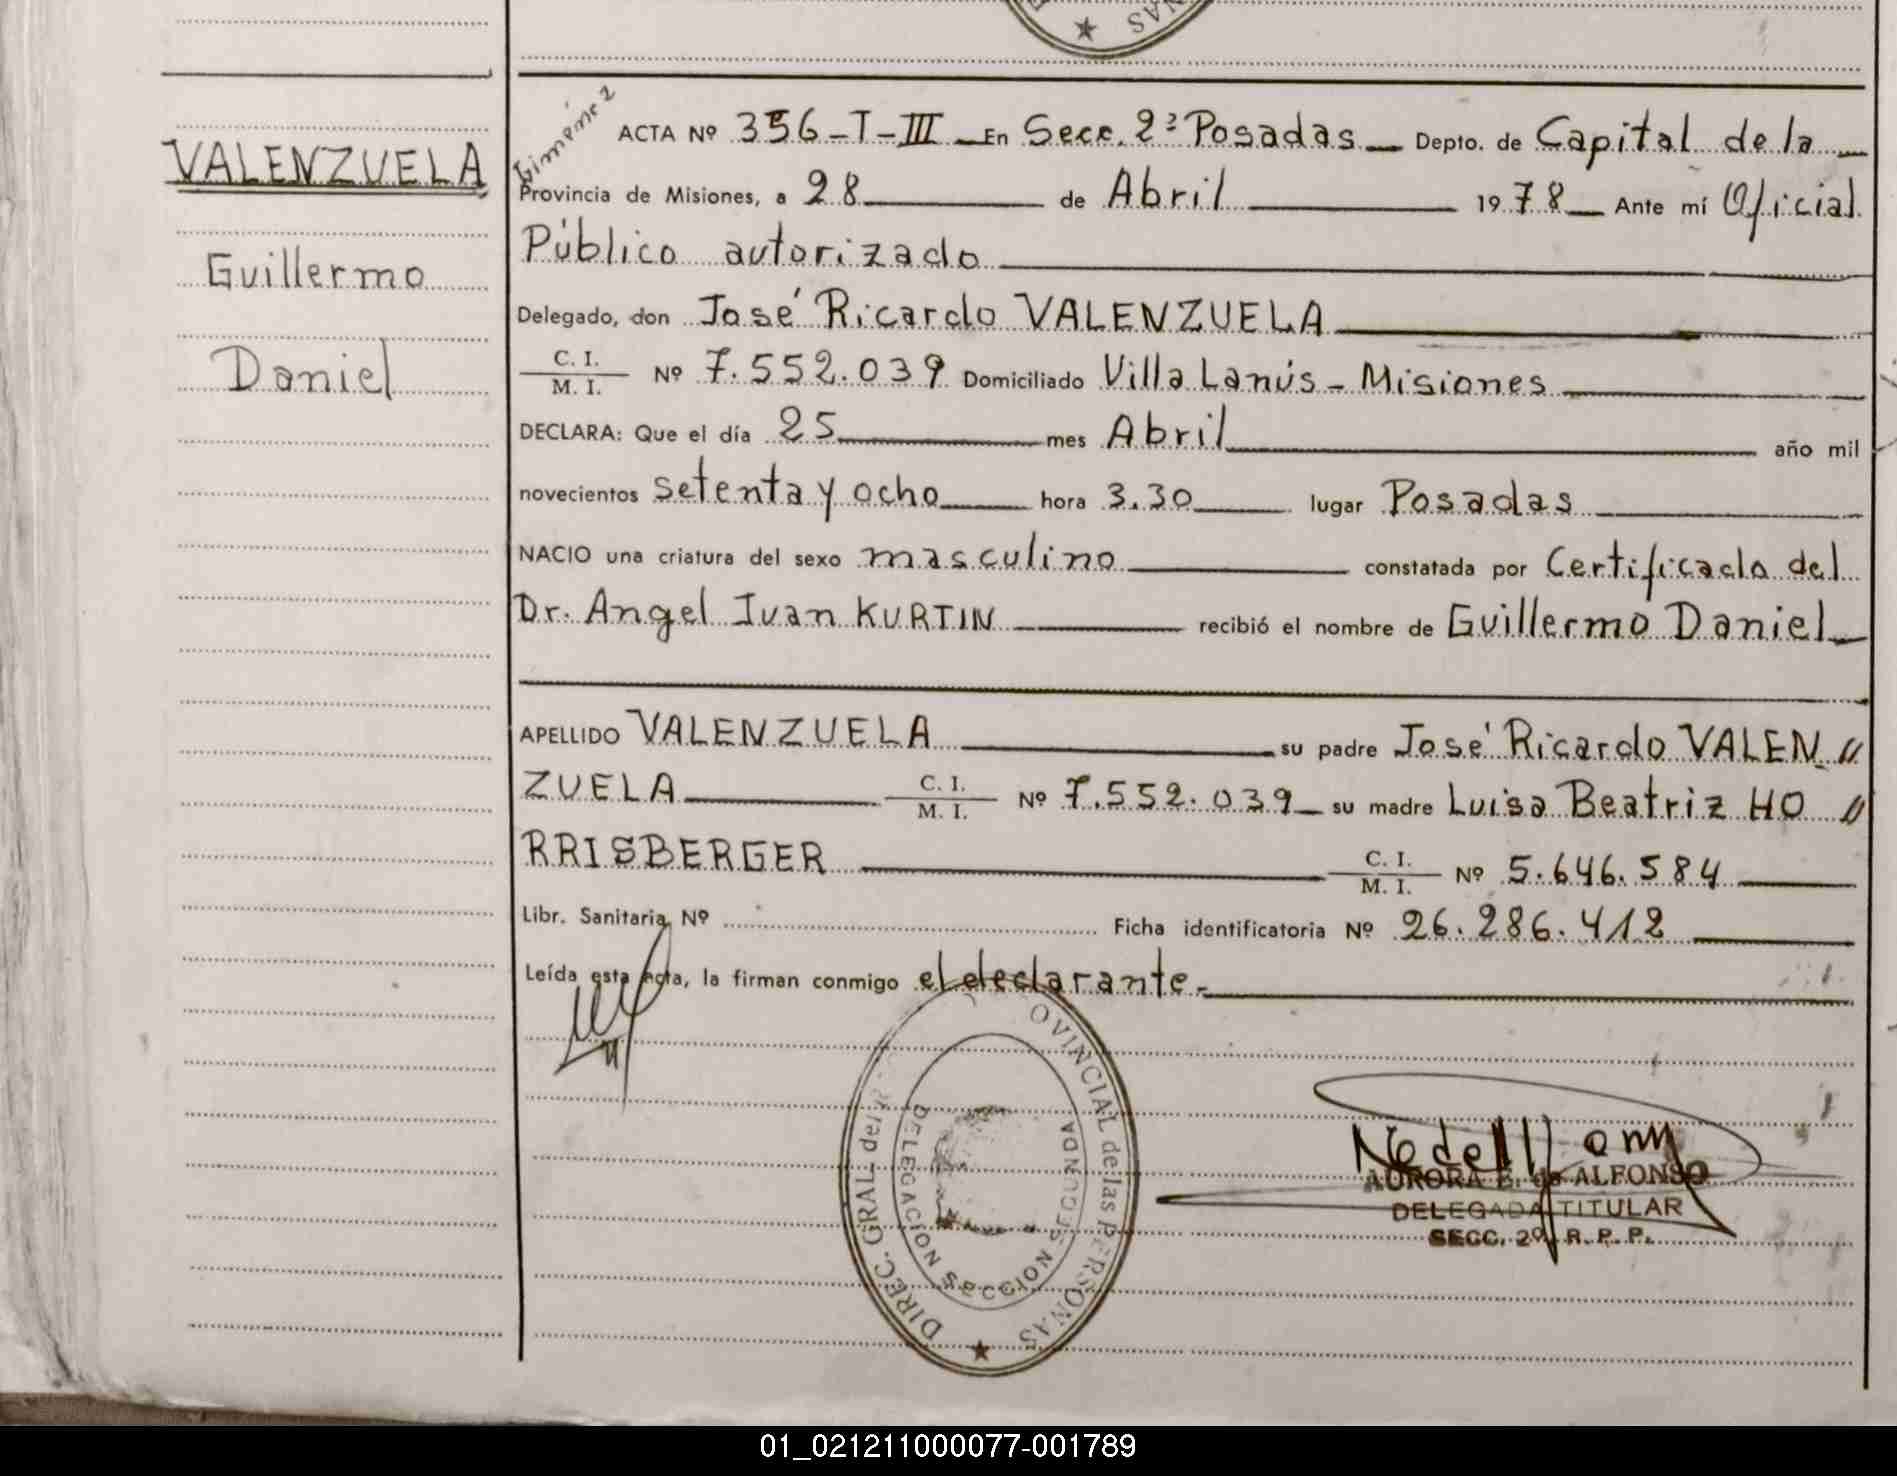 NAS
Giménez
ACTA Nº 356-T-III En Secc. 2ª Posadas Depto. de Capital de la
VALENZUELA
Provincia de Misiones, a 28 de Abril 1978 Ante mí Oficial
Público autorizado
Guillermo
Delegado, don José Ricardo VALENZUELA
Daniel
C. I.
M. I. Nº 7.552.039 Domiciliado Villa Lanús - Misiones
DECLARA: Que el día 25 mes Abril año mil
novecientos setenta y ocho hora 3.30 lugar Posadas
NACIO una criatura del sexo masculino constatada por Certificado del
Dr. Angel Ivan KURTIN recibió el nombre de Guillermo Daniel
APELLIDO VALENZUELA su padre José Ricardo VALEN //
ZUELA C. I.
M. I. Nº 7.552.039 su madre Luisa Beatriz HO //
RRISBERGER C. I.
M. I. Nº 5.646.584
Libr. Sanitaria Nº Ficha identificatoria Nº 26.286.412
Leída esta acta, la firman conmigo el declarante.-
DIREC. GRAL. del OVINCIAL de las PERSONAS
DELEGACION SECCION SEGUNDA
AURORA E. de ALFONSO
DELEGADA TITULAR
SECC. 2º R. P. P.
01_021211000077-001789